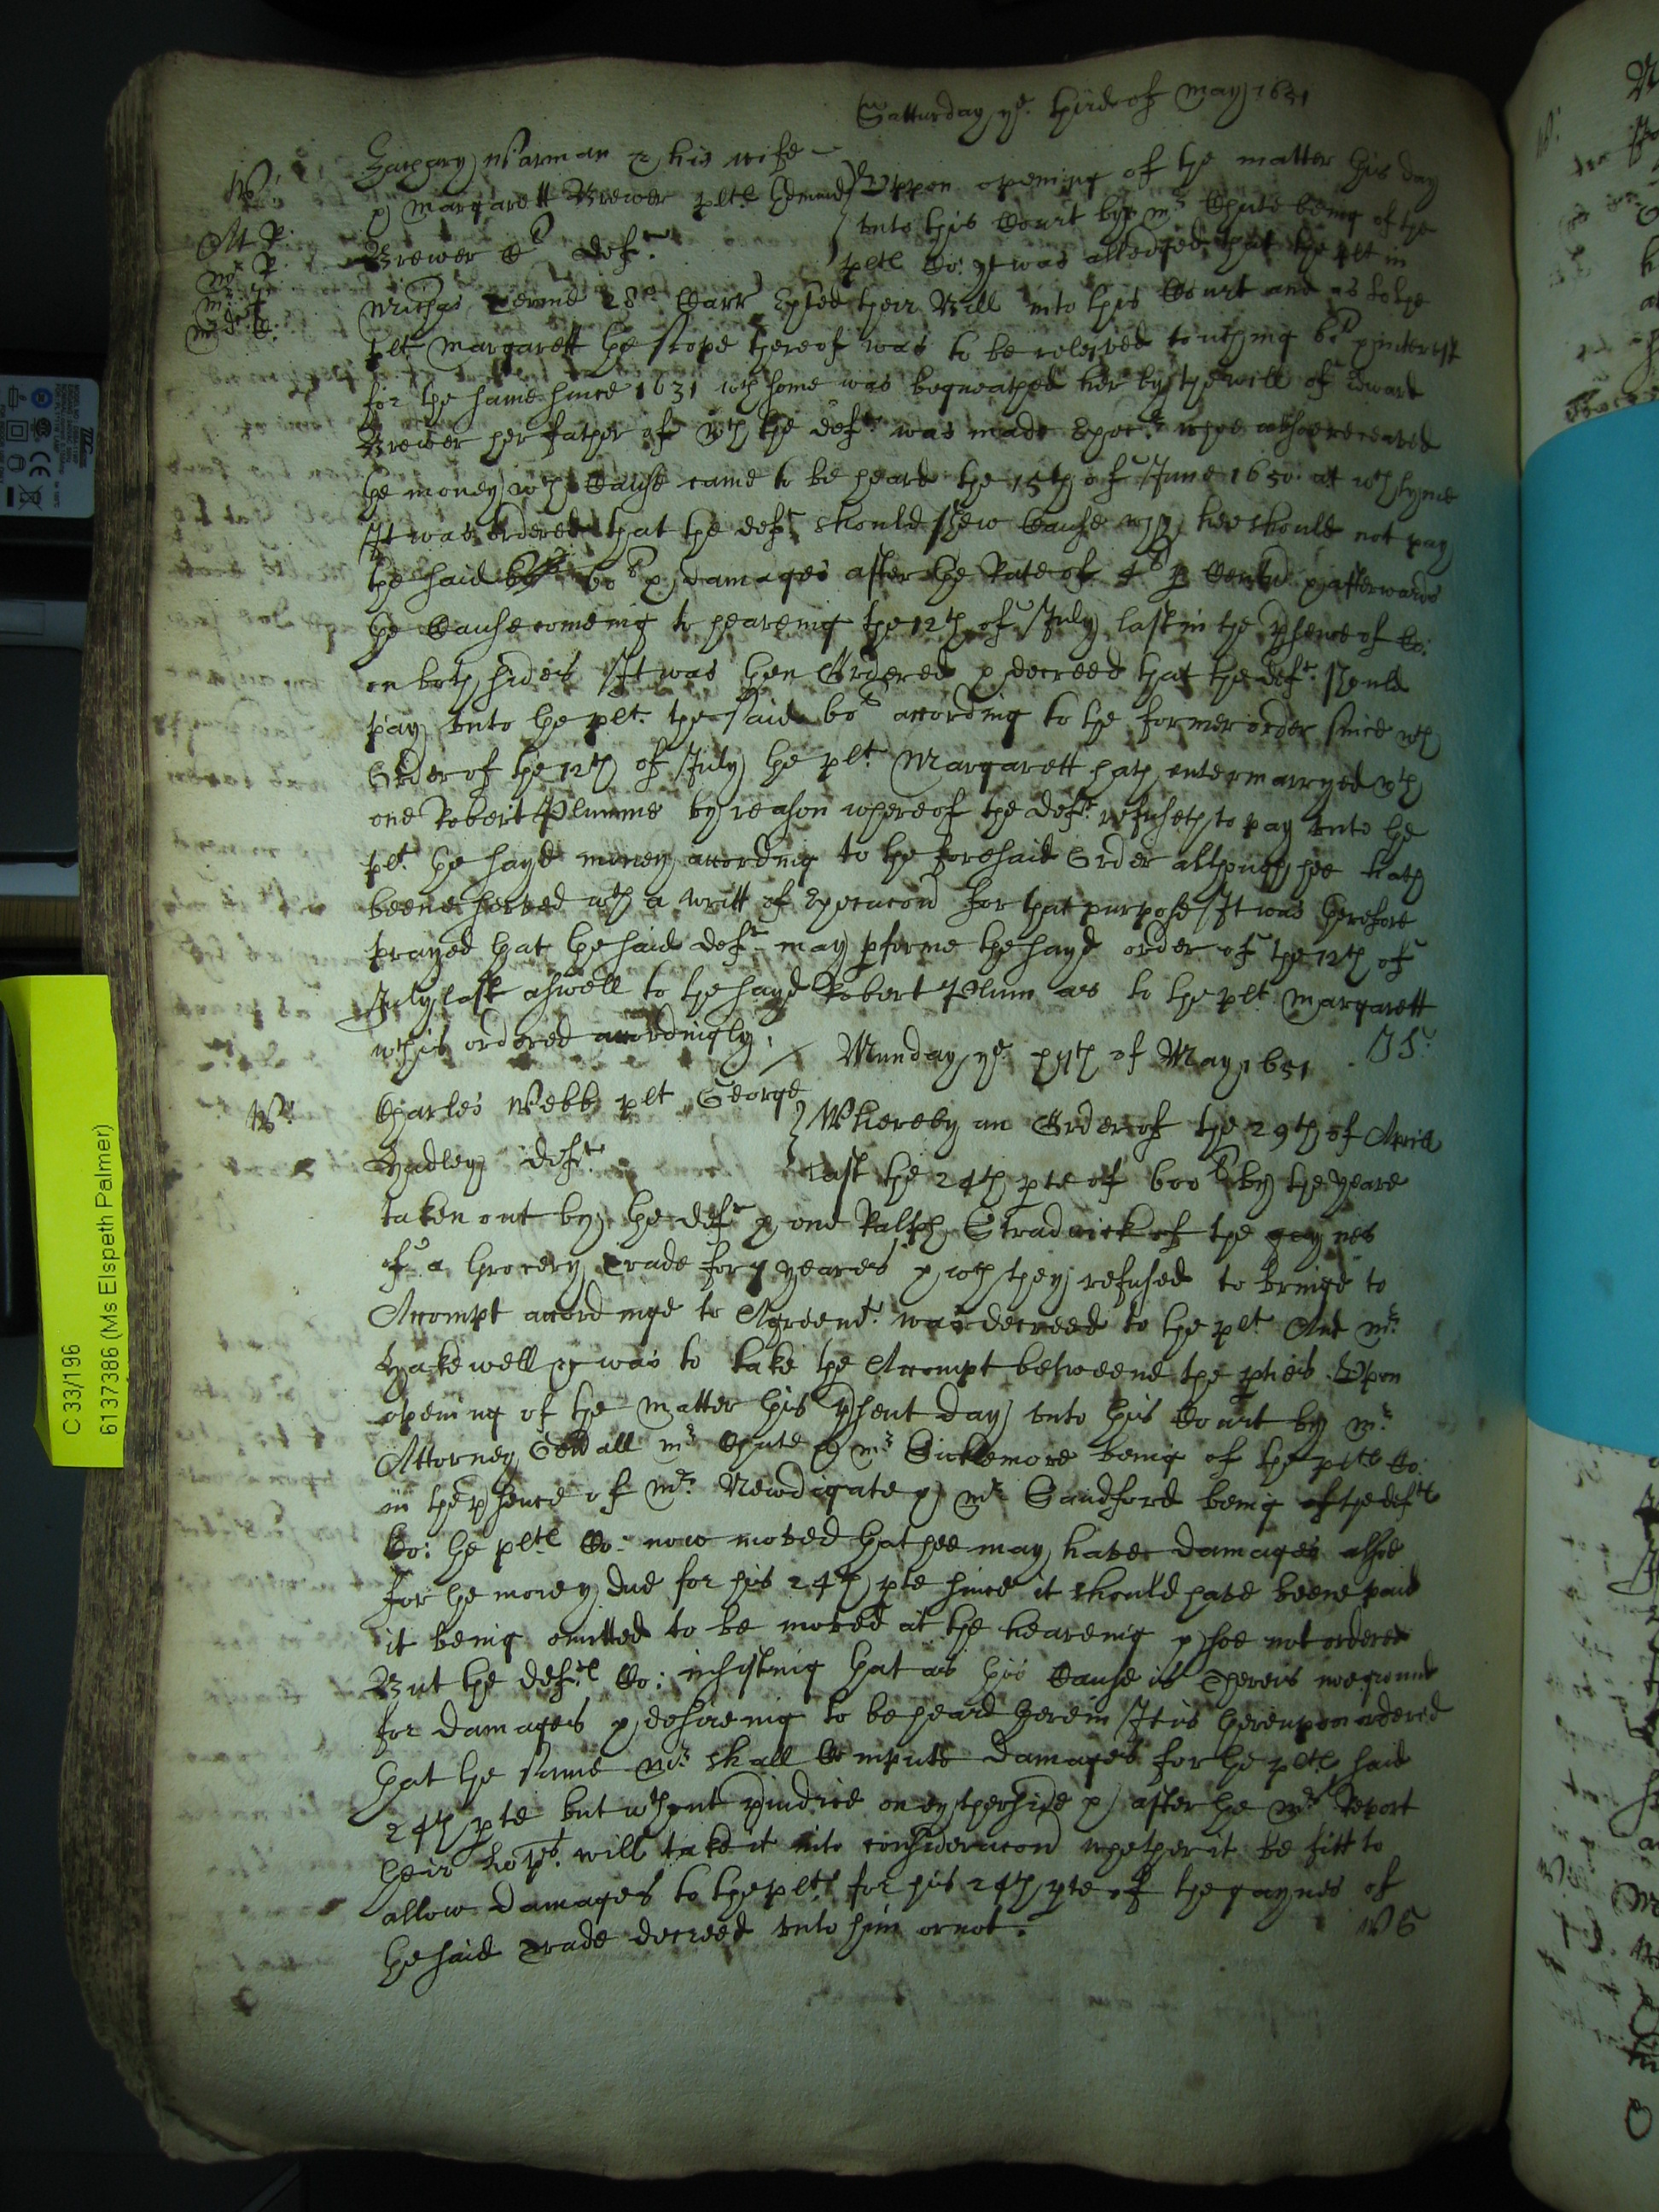 Satturday ye. third of May 1651
W:
Zachary Warman & his wife
& Margarett Brewer pltes Edmund
Brewer & deft.
Att P.
Mr P.
Mr
Uppon opening of the matter this day
unto this Court by mr Chute being of the
pltes Co: yt was alledged that the plt in
Michas Terme 28o Carr Exhed their Bill into this Court and as to the
plt Margarett the scope thereof was to be releived touching 60l & interest
for the same since 1631 wch some was bequeathed her by the will of Edward
Brewer her father of wch the deft was made Exocr whoe alsoe receaved
the money wch Cause came to be heard the 15th of June 1650. at wch tyme
It was ordered that the deft should shew Cause why hee should not pay
the said 60l & damages after the Rate of 4l p Centu & afterwards
the Cause comeing to heareing the 12th of July last in the psence of Co:
on both sides It was then Ordered & decreed that the deft. should
pay unto the plt. the said 60l according to the former order since wch
Order of the 12th of July the plt Margarett hath entermarryed wth
one Robert Plumme by reason whereof the deft. refuseth to pay unto the
plt the sayd money according to the foresaid Order although hee hath
beene served wth a writt of Execucon for that purpose It was therefore
prayed that the said deft may pforme the sayd order of the 12th of
July last aswell to the sayd Robert Plum as to the plt Margarett
wch is ordered accordingly.
JS.
Munday ye. 5th of May 1651
W:
Charles Webb plt George
Hadley deft.
Whereby an Order of the 29th of Aprill
last the 24th pte of 600l by the yeare
taken out by the deft & one Ralph Stradwick of the gaynes
of a Grocery Trade for 7 yeares & wch they refused to bringe to
Accompt accordinge to Agreemt. was decreed to the plt. And mr.
Hakewell was to take the Accompt betweene the pties. Upon
opening of the matter this psent day unto this Court by mr
Attorney Gerall mr Chute & mr Sicklemore being of the pltes Co:
in the psence of mr. Newdigate & mr Sandford being of the deftes
Co: the pltes Co: now moved that hee may have damages alsoe
for the money due for his 24th pte since it should have beene paid
it being omitted to be moved at the heareing & soe not ordered
But the deftes Co: insisting that as this Cause is There is noe ground
for damages & desireing to be heard therein It is thereupon ordered
that the same mr. shall Compute damages for the pltes said
24th pte but wthout pjudice on eyther side & after the mrs Report
their Lopps. will take it into consideracon whether it be fitt to
allow damages to the plt for his 24th pte of the gaynes of
the said Trade decreed unto him or not.
WS
C 33/196
6137386 (Ms Elspeth Palmer)